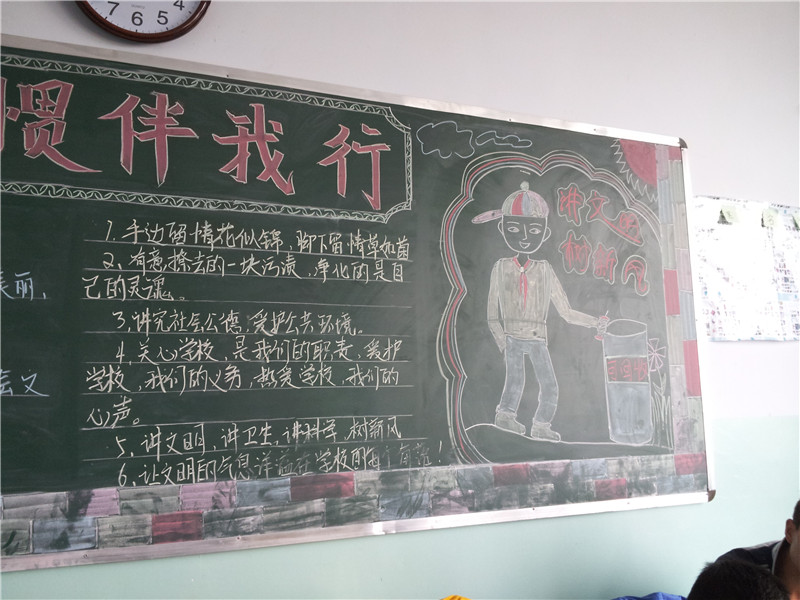 7 6 5 4
惯伴我行
1、手边留情花似锦，脚下留情草如茵
2、有意擦去的一块污渍，净化的是自
己的灵魂。
3、讲究社会公德，爱护公共环境。
4、关心学校，是我们的职责，爱护
学校，我们的义务，热爱学校，我们的
心声。
5、讲文明，讲卫生，讲科学，树新风
6、让文明的气息洋溢在学校的每个角落！
美丽，
文
讲文明
树新风